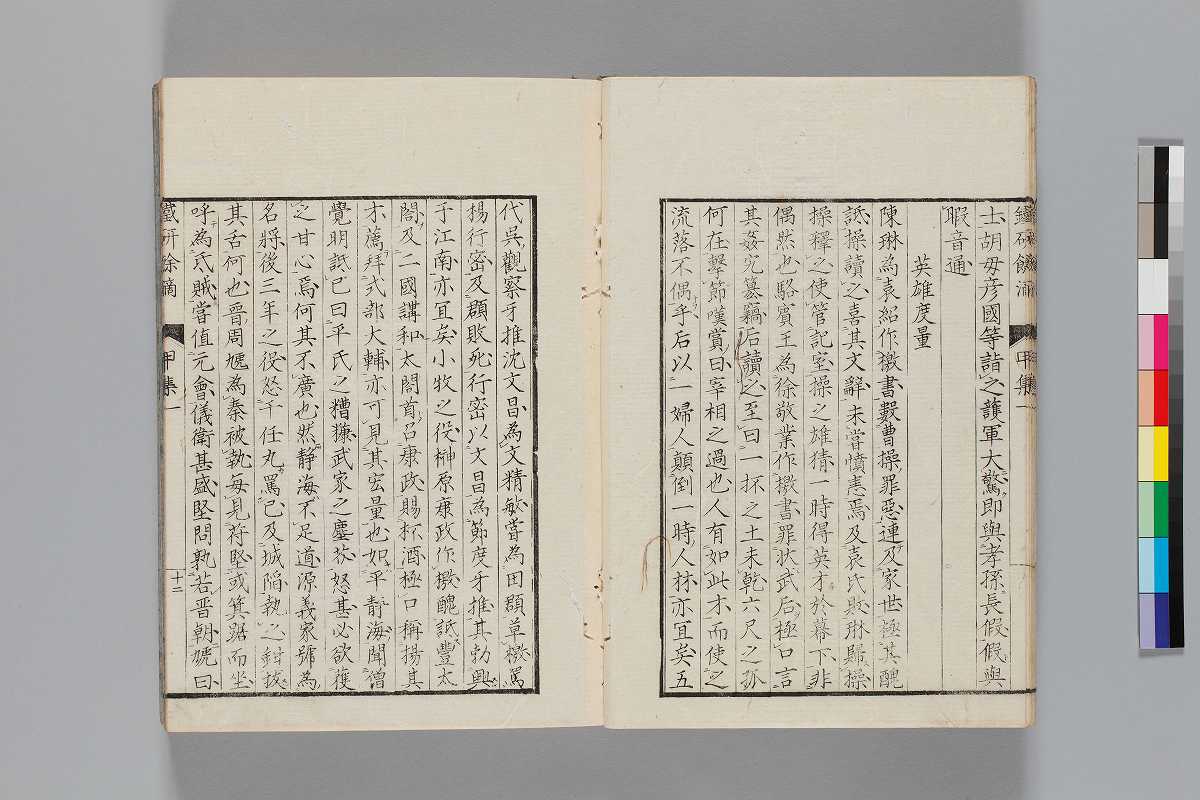 鐵研餘滴
甲集一
士胡毋彦國等詣之護軍大驚即與孝孫長假假與
暇音通
英雄度量
陳琳為袁紹作檄書數曹操罪惡連及家世極其醜
詆操讀之喜其文辭未嘗憤恚焉及袁氏敗琳歸操
操釋之使管記室操之雄猜一時得英才於幕下非
偶然也駱賓王為徐敬業作檄書罪状武后極口言
其姦宄簒竊后讀之至曰一抔之土未乾六尺之孤
何在擊節嘆賞曰宰相之過也人有如此才而使之
流落不偶乎后以一婦人顛倒一時人材亦宜矣五
代吳觀察牙推沈文昌為文精敏嘗為田頵草檄罵
楊行密及頵敗死行密以文昌為節度牙推其勃興
于江南亦宜矣小牧之役榊原康政作檄醜詆豐太
閤及二國講和太閤首召康政賜杯酒極口稱揚其
才薦拜式部大輔亦可見其宏量也如平靜海聞僧
覺明詆已曰平氏之糟糠武家之塵芥怒甚必欲獲
之甘心焉何其不廣也然靜海不足道源義家號為
名將後三年之役怒千任丸罵已及城陥執之鉗拔
其舌何也晋周虓為秦被執每見苻堅或箕踞而坐
呼為氐賊嘗值元會儀衛甚盛堅問孰若晋朝虓曰
鐵研餘滴
甲集一
十二